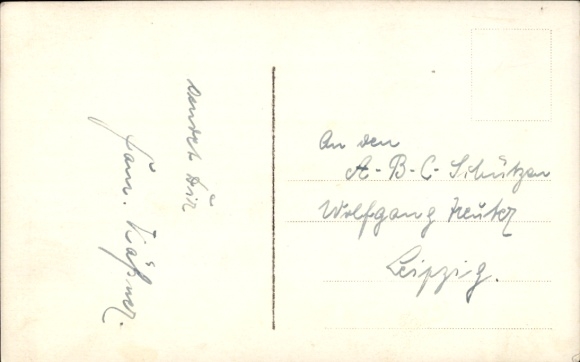 sendet Dir
Fam. Käßner.
An den
A-B-C-Schützen
Wolfgang Freuter
Leipzig.